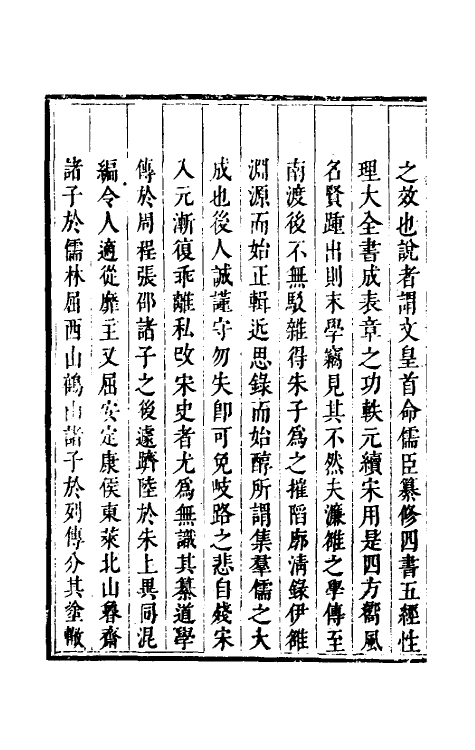 之效也說者謂文皇首命儒臣纂修四書五經性
理大全書成表章之功軼元續宋用是四方嚮風
名賢踵出則末學竊見其不然夫濂雒之學傳至
南渡後不無駁雜得朱子爲之摧陷廓清錄伊雒
淵源而始正輯近思錄而始醇所謂集羣儒之大
成也後人誠謹守勿失卽可免岐路之悲自殘宋
入元漸復乖離私改宋史者尤爲無識其纂道學
傳於周程張邵諸子之後遠躋陸於朱上異同混
編令人適從靡主又屈安定康侯東萊北山魯齋
諸子於儒林屈西山鶴山諸子於列傳分其塗轍